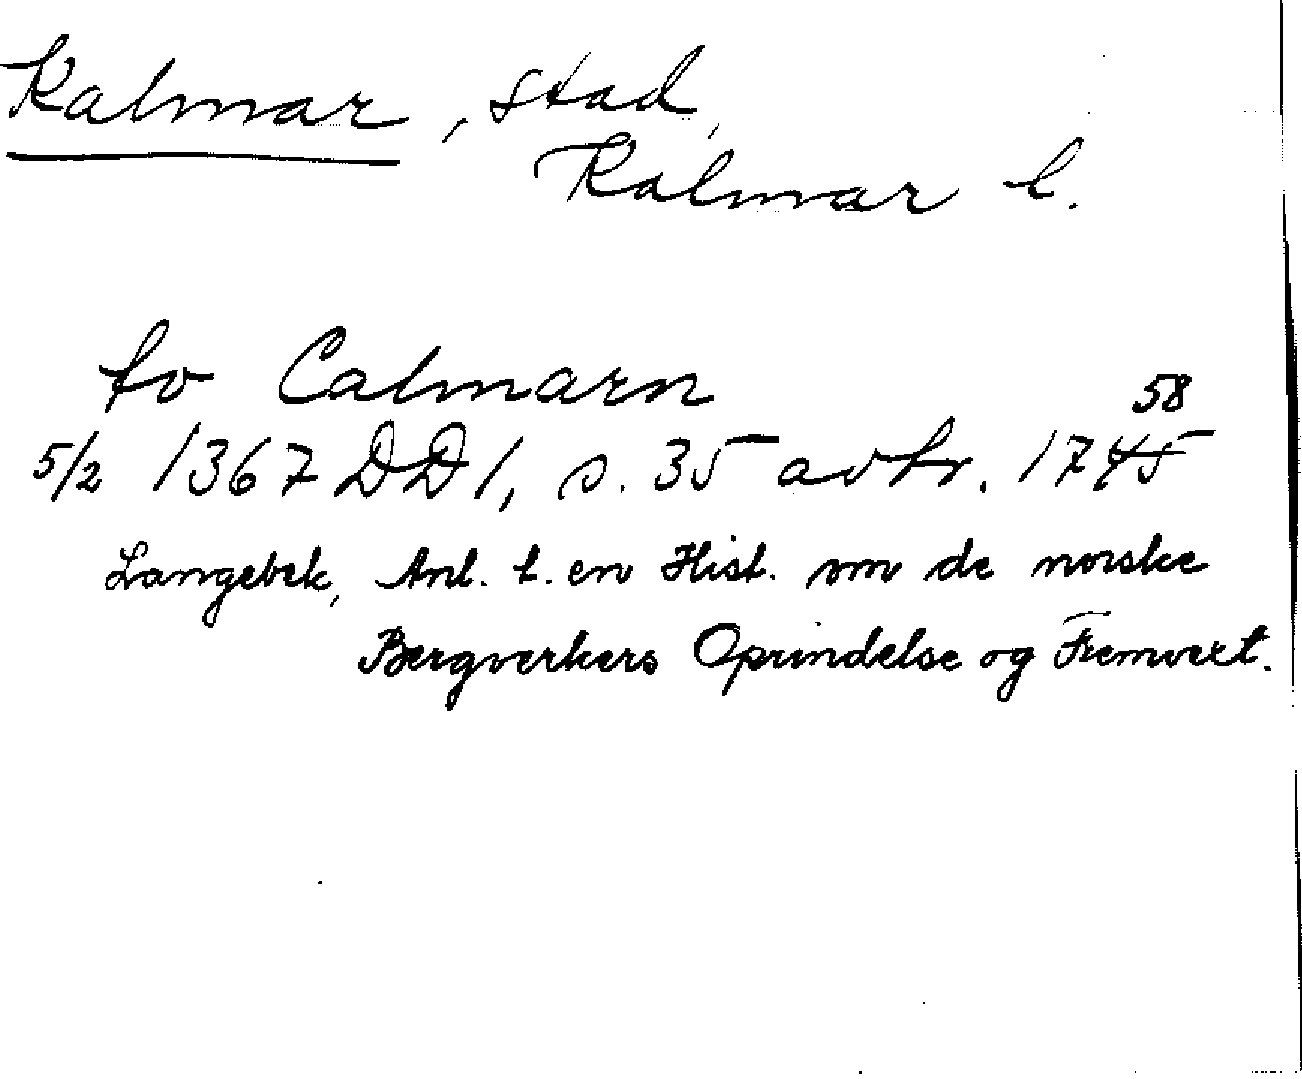 Kalmar, stad,
Kalmar l.
to Calmarn
58
5/2 1367 DD 1, s. 35 avtr. 1745
Langebek, Anl. t. en Hist. om de norske
Bergverkers Oprindelse og Fremvext.